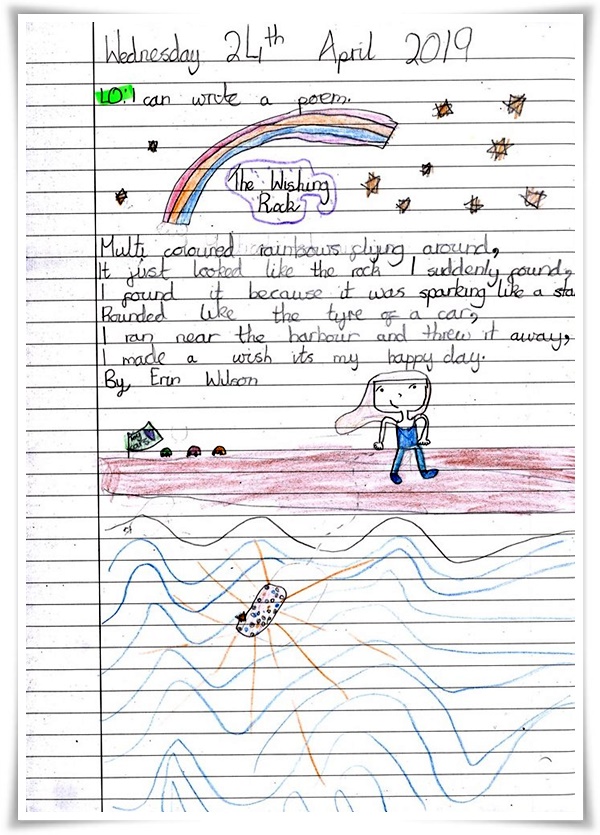 Wednesday 24th April 2019
LO: I can write a poem.
The Wishing
Rock
Multi coloured rainbows flying around,
It just looked like the rock I suddenly found,
I found it because it was sparking like a sta
Rounded like the tyre of a car,
I ran near the harbour and threw it away,
I made a wish its my happy day.
By Erin Wilson